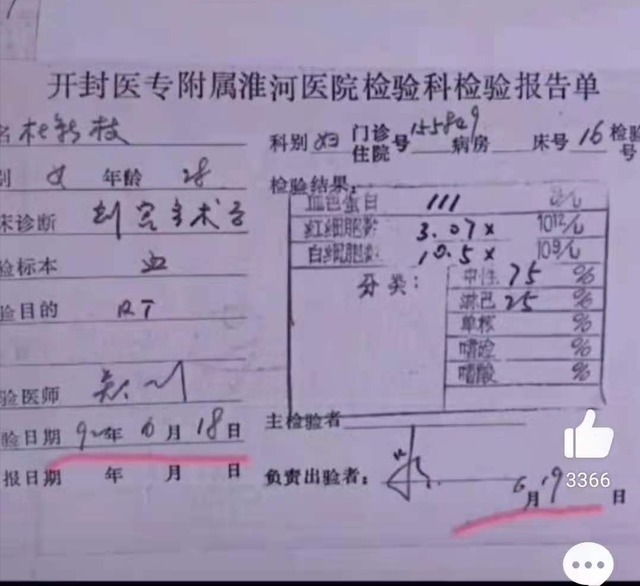 开封医专附属淮河医院检验科检验报告单
名 杜新枝 科别 妇 门诊住院号 155849 病房 床号 16 检验号
别 女 年龄 28
检验结果:
血色蛋白 111 g/L
床诊断 剖宫手术后
红细胞数 3.07× 1012/L
白细胞数 10.5× 109/L
验标本 血
分类: 中性 75 %
淋巴 25 %
验目的 RT
单核 %
嗜硷 %
嗜酸 %
验医师
主检验者
验日期 92年 6月 18日
报日期 年 月 日
负责出验者:
6月19日
3366